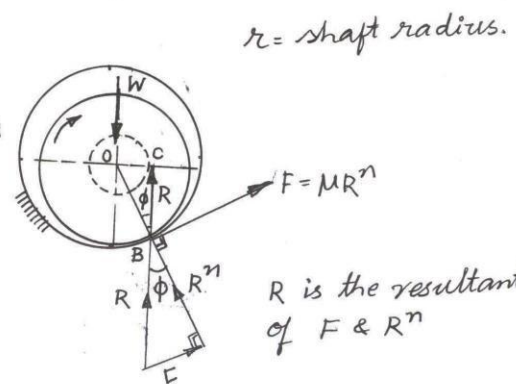 r = shaft radius.
W
O
C
φ
R
F = μRⁿ
B
R
φ
Rⁿ
F
R is the resultant
of F & Rⁿ